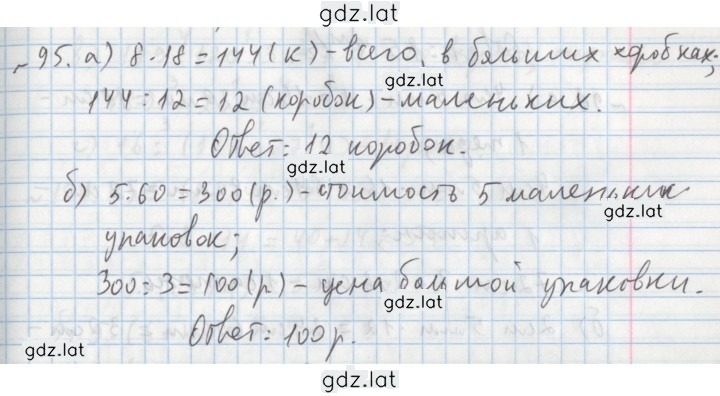 gdz.lat
№ 95. а) 8·18=144 (к) - всего, в больших коробках;
gdz.lat
144:12=12 (коробок) - маленьких.
Ответ: 12 коробок.
gdz.lat
б) 5·60=300 (р.) - стоимость 5 маленьких
gdz.lat
упаковок;
300:3=100 (р) - цена большой упаковки.
gdz.lat
Ответ: 100 р.
gdz.lat
gdz.lat
gdz.lat